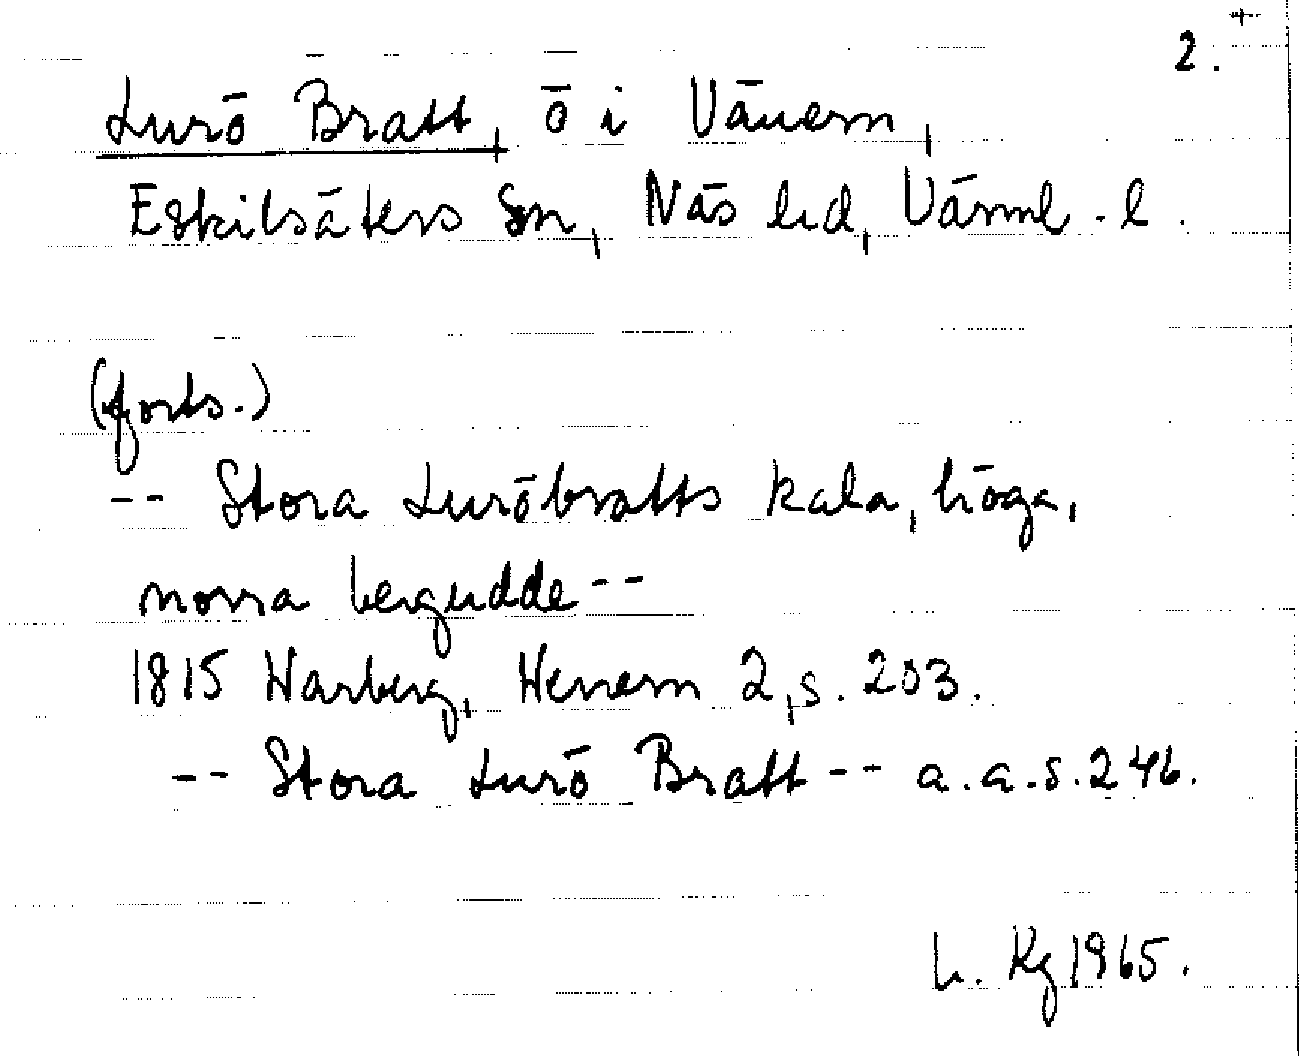 2.
Lurö Bratt, ö i Vänern,
Eskilsäters sn, Näs hd, Värml. l.
(forts.)
-- Stora Luröbratts kala, höga,
norra bergudde --
1815 Warberg, Wenern 2, s. 203.
-- Stora Lurö Bratt -- a.a.s. 246.
h. Kg 1965.